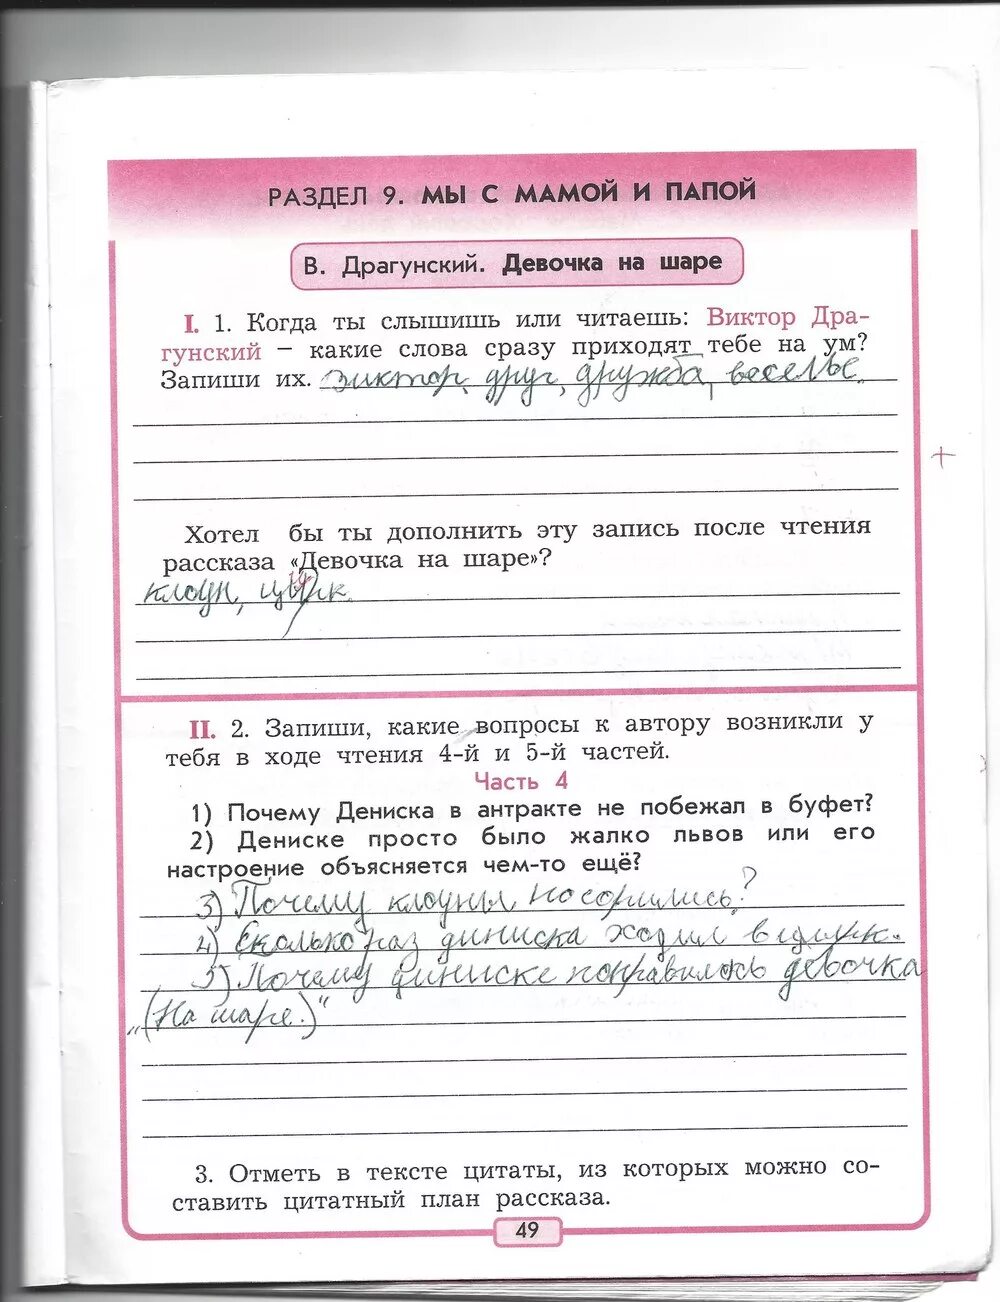 РАЗДЕЛ 9. МЫ С МАМОЙ И ПАПОЙ
В. Драгунский. Девочка на шаре
I. 1. Когда ты слышишь или читаешь: Виктор Дра-
гунский – какие слова сразу приходят тебе на ум?
Запиши их. виктор, друг, дружба, веселье.
+
Хотел бы ты дополнить эту запись после чтения
рассказа «Девочка на шаре»?
клоун, цирк.
II. 2. Запиши, какие вопросы к автору возникли у
тебя в ходе чтения 4-й и 5-й частей.
Часть 4
1) Почему Дениска в антракте не побежал в буфет?
2) Дениске просто было жалко львов или его
настроение объясняется чем-то ещё?
3) Почему клоуны посорились?
4) Сколько раз диниска ходил в цирк.
5) Почему диниске понравилось девочка
„(На шаре.)“
3. Отметь в тексте цитаты, из которых можно со-
ставить цитатный план рассказа.
49